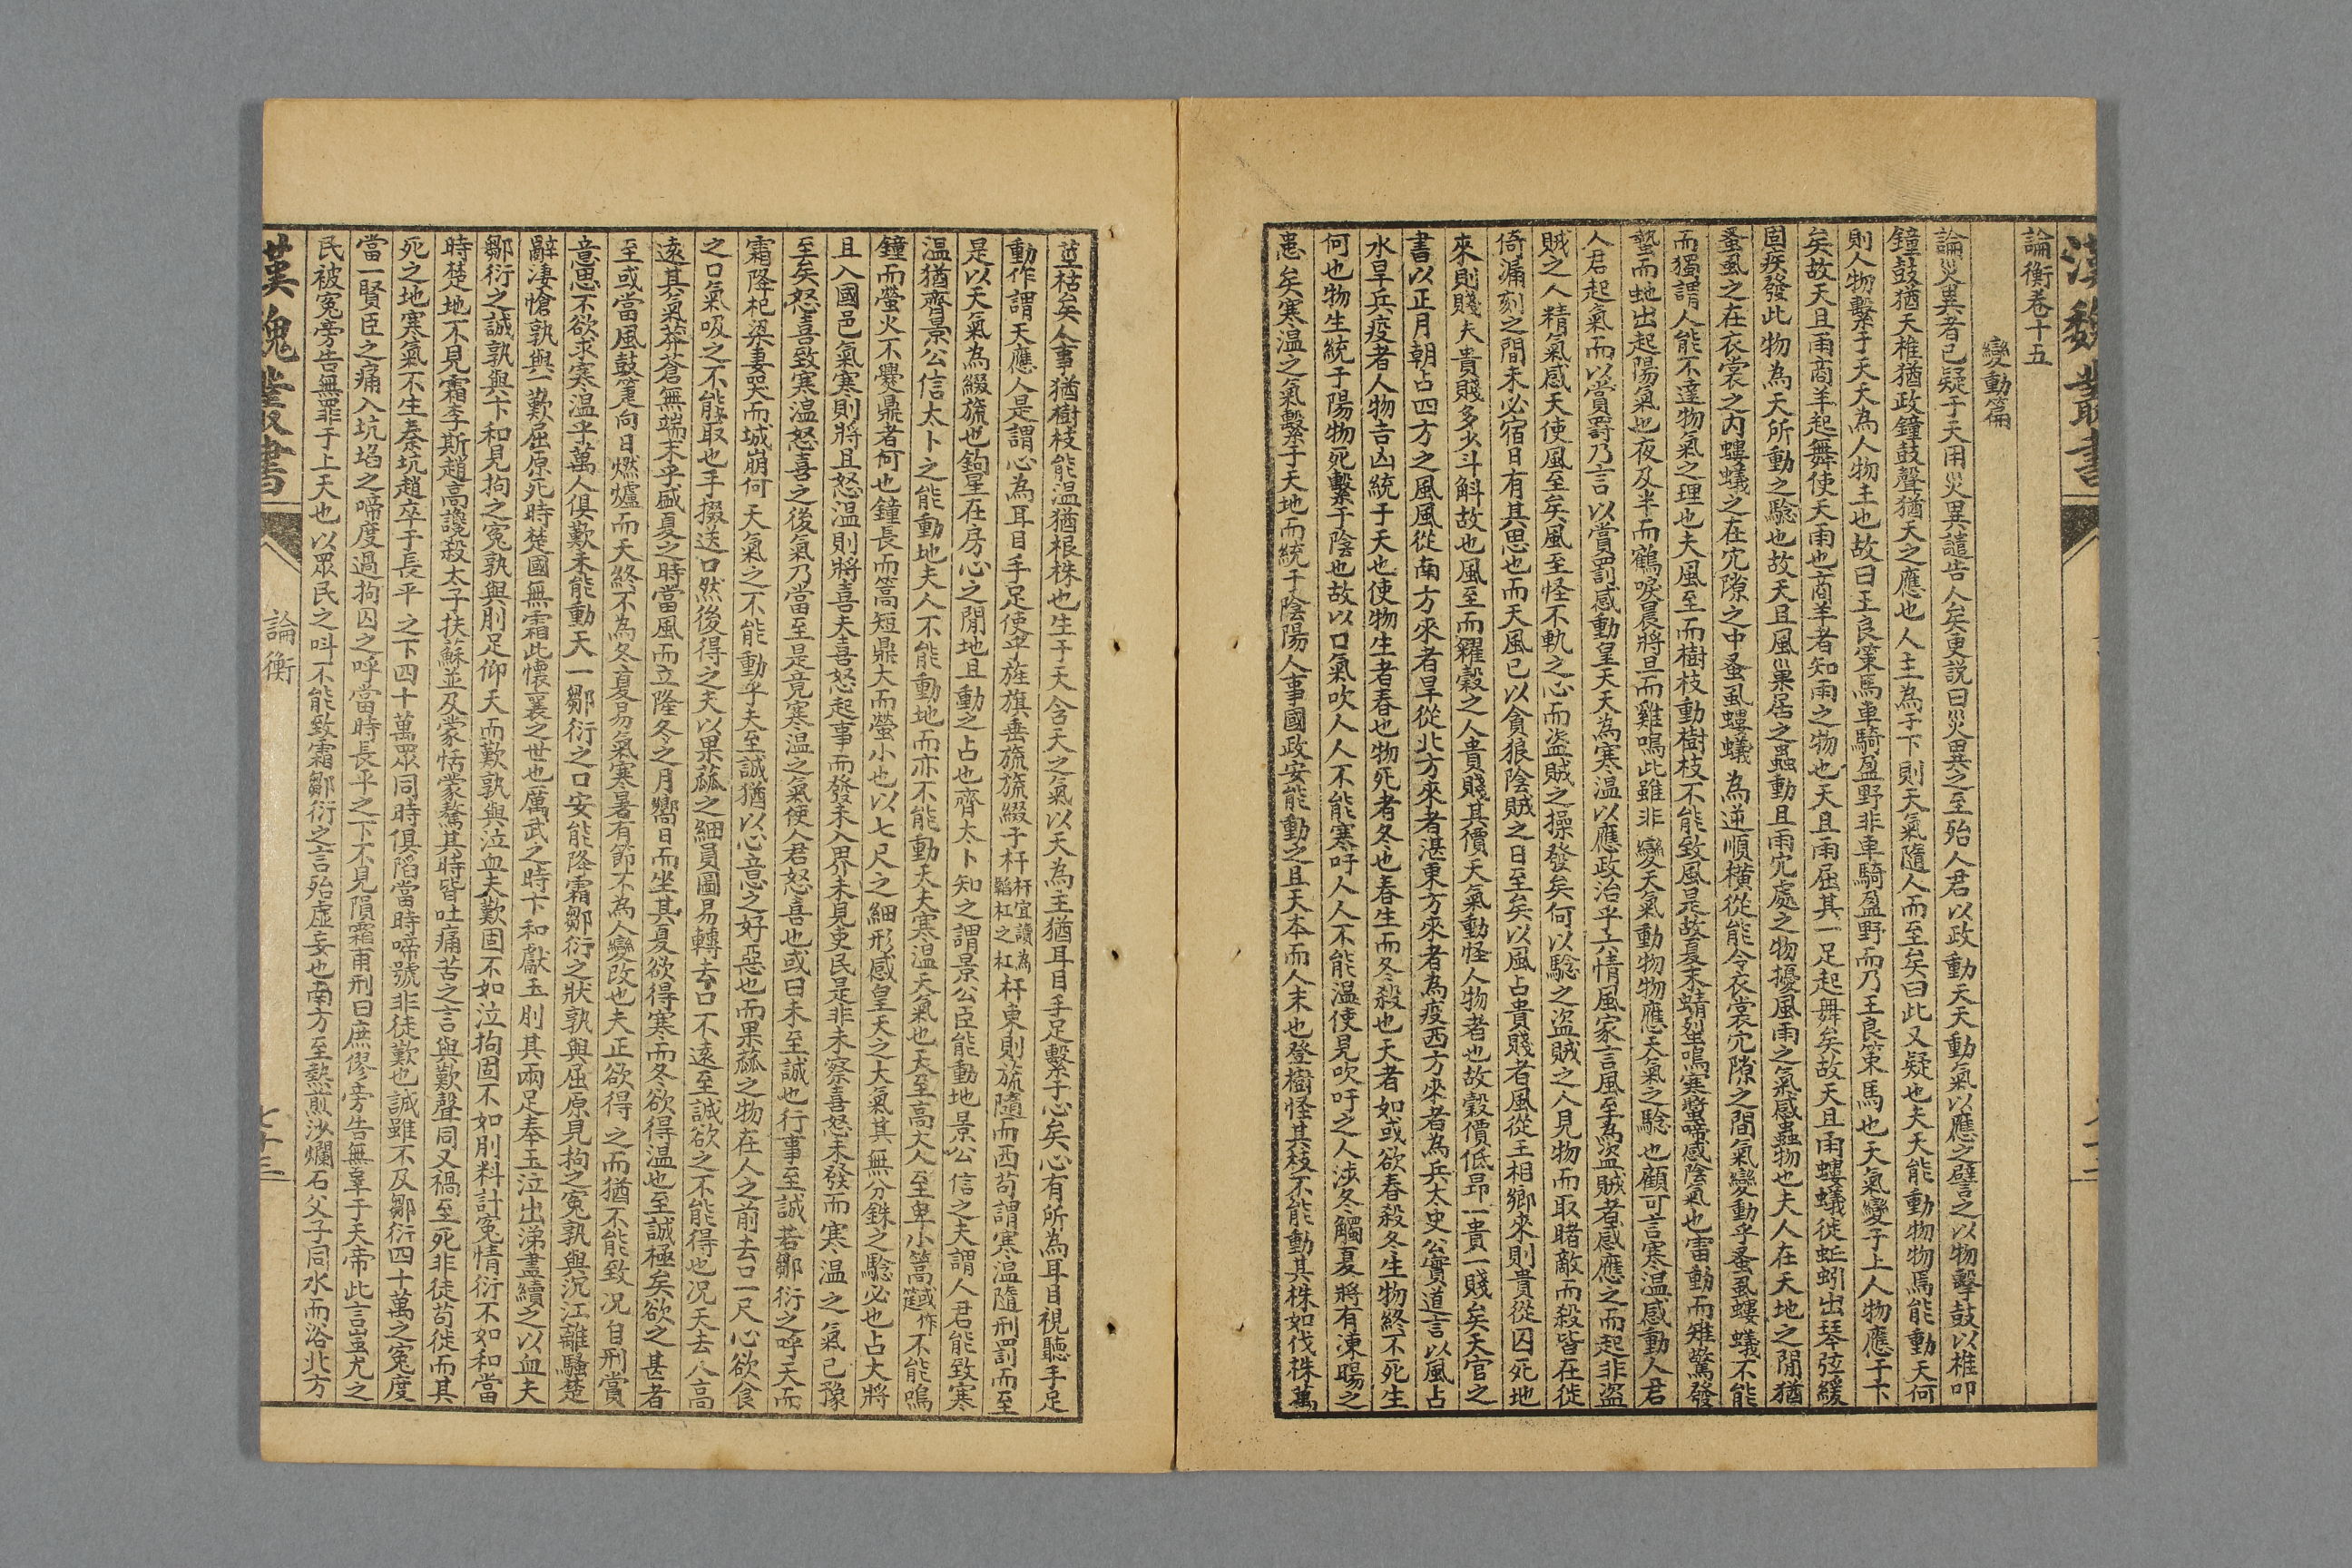 漢魏叢書
論衡卷十五
變動篇
論災異者已疑于天用災異譴告人矣更説曰災異之至殆人君以政動天天動氣以應之譬之以物擊鼓以椎叩
鐘鼓猶天椎猶政鐘鼓聲猶天之應也人主為于下則天氣隨人而至矣曰此又疑也夫天能動物物焉能動天何
則人物繫于天天為人物主也故曰王良策馬車騎盈野非車騎盈野而乃王良策馬也天氣變于上人物應于下
矣故天且雨商羊起舞使天雨也商羊者知雨之物也天且雨屈其一足起舞矣故天且雨螻蟻徙蚯蚓出琴弦緩
固疾發此物為天所動之驗也故天且風巢居之蟲動且雨穴處之物擾風雨之氣感蟲物也夫人在天地之間猶
蚤虱之在衣裳之內螻蟻之在穴隙之中蚤虱螻蟻為逆順橫從能令衣裳穴隙之間氣變動乎蚤虱螻蟻不能
而獨謂人能不達物氣之理也夫風至而樹枝動樹枝不能致風是故夏末蜻𧊿鳴寒螿啼感陰氣也雷動而雉驚發
蟄而虵出起陽氣也夜及半而鶴唳晨將旦而雞鳴此雖非變天氣動物物應天氣之驗也顧可言寒温感動人君
人君起氣而以賞罰乃言以賞罰感動皇天天為寒温以應政治乎六情風家言風至為盜賊者感應之而起非盜
賊之人精氣感天使風至矣風至怪不軌之心而盜賊之操發矣何以驗之盜賊之人見物而取睹敵而殺皆在徙
倚漏刻之間未必宿日有其思也而天風已以貪狼陰賊之日至矣以風占貴賤者風從王相鄉來則貴從囚死地
來則賤夫貴賤多少斗斛故也風至而糴穀之人貴賤其價天氣動怪人物者也故穀價低昂一貴一賤矣天官之
書以正月朝占四方之風風從南方來者旱從北方來者湛東方來者為疫西方來者為兵太史公實道言以風占
水旱兵疫者人物吉凶統于天也使物生者春也物死者冬也春生而冬殺也天者如或欲春殺冬生物終不死生
何也物生統于陽物死繫于陰也故以口氣吹人人不能寒吁人人不能温使見吹吁之人涉冬觸夏將有凍暘之
患矣寒温之氣繫于天地而統于陰陽人事國政安能動之且天本而人末也登樹怪其枝不能動其株如伐株萬
莖枯矣人事猶樹枝能温猶根株也生于天含天之氣以天為主猶耳目手足繫于心矣心有所為耳目視聽手足
動作謂天應人是謂心為耳目手足使乎旌旗垂旒旒綴于杆杆宜讀為韜杠之杠杆東則旒隨而西苟謂寒温隨刑罰而至
是以天氣為綴旒也鉤星在房心之間地且動之占也齊太卜知之謂景公臣能動地景公信之夫謂人君能致寒
温猶齊景公信太卜之能動地夫人不能動地而亦不能動天夫寒温天氣也天至高大人至卑小篙或作筳不能鳴
鐘而螢火不㸑鼎者何也鐘長而篙短鼎大而螢小也以七尺之細形感皇天之大氣其無分銖之驗必也占大將
且入國邑氣寒則將且怒温則將喜夫喜怒起事而發未入界未見吏民是非未察喜怒未發而寒温之氣已豫
至矣怒喜致寒温怒喜之後氣乃當至是竟寒温之氣使人君怒喜也或曰未至誠也行事至誠若鄒衍之呼天而
霜降杞梁妻哭而城崩何天氣之不能動乎夫至誠猶以心意之好惡也而果蓏之物在人之前去口一尺心欲食
之口氣吸之不能取也手掇送口然後得之夫以果蓏之細員圖易轉去口不遠至誠欲之不能得也況天去人高
遠其氣莽蒼無端末乎盛夏之時當風而立隆冬之月嚮日而坐其夏欲得寒而冬欲得温也至誠極矣欲之甚者
至或當風鼓箑向日燃爐而天終不為冬夏易氣寒暑有節不為人變改也夫正欲得之而猶不能致況自刑賞
意思不欲求寒温乎萬人俱歎未能動天一鄒衍之口安能降霜鄒衍之狀孰與屈原見拘之冤孰與沉江離騷楚
辭淒愴孰與一歎屈原死時楚國無霜此懷襄之世也厲武之時卞和獻玉刖其兩足奉玉泣出涕盡續之以血夫
鄒衍之誠孰與卞和見拘之冤孰與刖足仰天而歎孰與泣血夫歎固不如泣拘固不如刖料計冤情衍不如和當
時楚地不見霜李斯趙高讒殺太子扶蘇並及蒙恬蒙驁其時皆吐痛苦之言與歎聲同又禍至死非徒苟徙而其
死之地寒氣不生秦坑趙卒于長平之下四十萬眾同時俱陷當時啼號非徒歎也誠雖不及鄒衍四十萬之冤度
當一賢臣之痛入坑埳之啼度過拘囚之呼當時長平之下不見隕霜甫刑曰庶僇旁告無辜于天帝此言蚩尤之
民被冤旁告無罪于上天也以眾民之叫不能致霜鄒衍之言殆虛妄也南方至熱煎沙爛石父子同水而浴北方
漢魏叢書
論衡
七十三